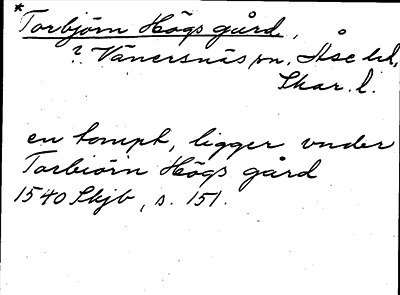 *
Torbjörn Högs gård,
? Vänersnäs sn, Åse hd,
Skar. l.
en tompt, ligger vnder
Torbiörn Högs gård
1540 Skjb, s. 151.